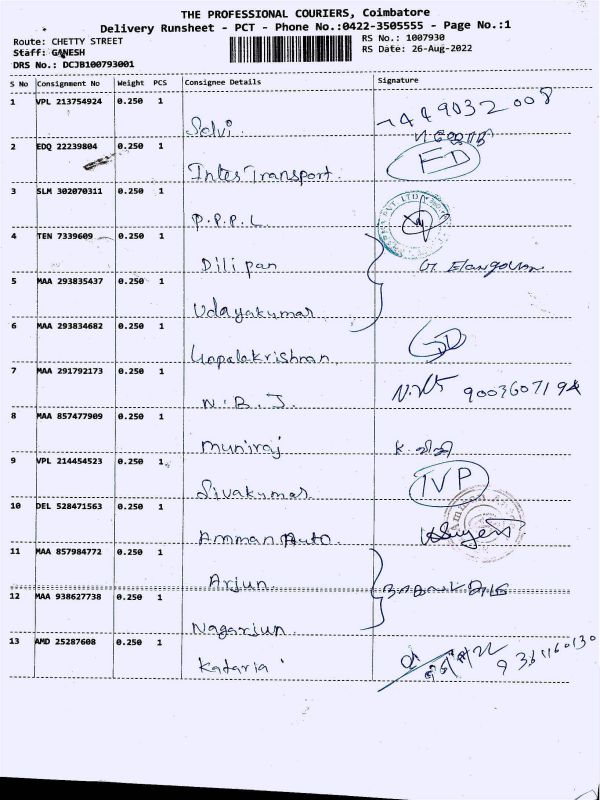 THE PROFESSIONAL COURIERS, Coimbatore
Delivery Runsheet - PCT - Phone No.:0422-3505555 - Page No.:1
Route: CHETTY STREET
RS No.: 1007930
Staff: GANESH
RS Date: 26-Aug-2022
DRS No.: DCJB100793001
S No Consignment No Weight PCS Consignee Details Signature
1 VPL 213754924 0.250 1
Selvi
2 EDQ 22239804 0.250 1
Inter Transport. FD
3 SLM 302070311 0.250 1
P.P.P.L. PVT. LTD
4 TEN 7339609 0.250 1
Dilipan G. Elangovan
5 MAA 293835437 0.250 1
Udayakumar
6 MAA 293834682 0.250 1
Gopalakrishnan GD
7 MAA 291792173 0.250 1
N.B.J.
8 MAA 857477909 0.250 1
Muniraj
9 VPL 214454523 0.250 1
Sivakumar IVP
10 DEL 528471563 0.250 1
Amman Auto.
11 MAA 857984772 0.250 1
Arjun.
12 MAA 938627738 0.250 1
Nagarjun
13 AMD 25287608 0.250 1
Kataria